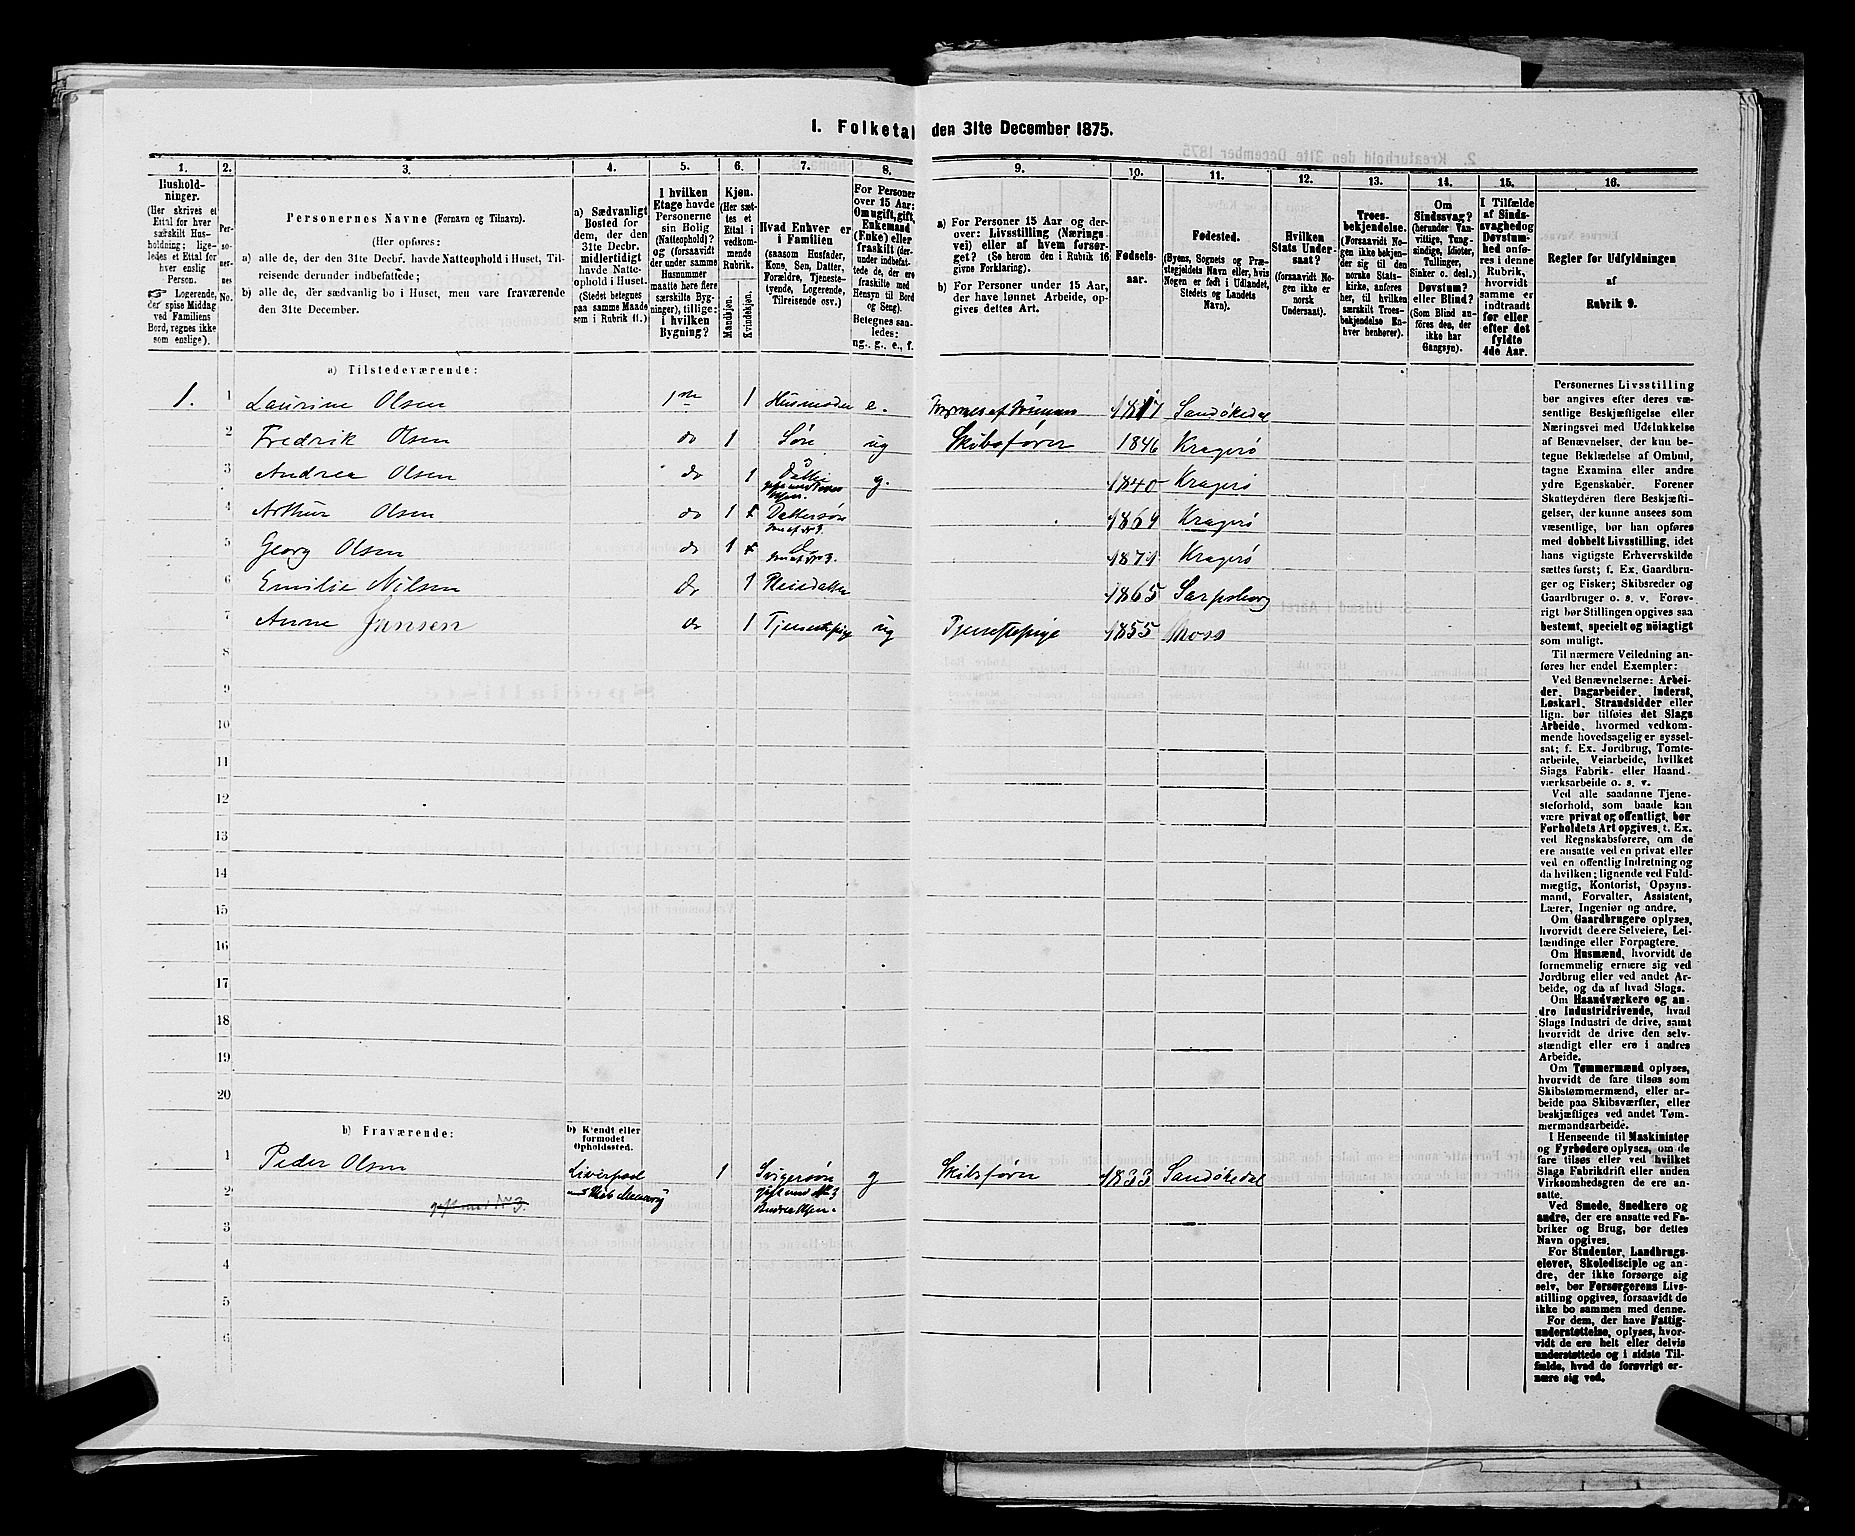 I. Folketal den 31te December 1875.
1. 2. 3. 4. 5. 6. 7. 8. 9. 10. 11. 12. 13. 14. 15. 16.
Hushold-
ninger.
(Her skrives et
Ettal for hver
særskilt Hus-
holdning; lige-
ledes et Ettal for
hver enslig
Person.
☞ Logerende,
der spise Middag
ved Familiens
Bord, regnes ikke
som enslige).
Per-
so-
ner-
nes
No.
Personernes Navne (Fornavn og Tilnavn).
(Her opføres:
a) alle de, der den 31te Decbr. havde Natteophold i Huset, Til-
reisende derunder indbefattede;
b) alle de, der sædvanlig bo i Huset, men vare fraværende
den 31te December.
a) Sædvanligt
Bosted for
dem, der den
31te Decbr.
midlertidigt
havde Natte-
ophold i Huset.
(Stedet betegnes
paa samme Maade
som i Rubrik 11.)
I hvilken
Etage havde
Personerne
sin Bolig
(Natteophold)?
og (forsaavidt
der under samme
Husnummer
maatte høre flere
særskilte Byg-
ninger), tillige:
i hvilken
Bygning?
Kjøn.
(Her sæt-
tes et
Ettal i
vedkom-
mende
Rubrik.
Mandkjøn.
Kvindekjøn.
Hvad Enhver er
i Familien
(saasom Husfader,
Kone, Søn, Datter,
Forældre, Tjeneste-
tyende, Logerende,
Tilreisende osv.)
For Personer
over 15 Aar:
Om ugift, gift,
Enkemand
(Enke) eller
fraskilt (der-
under indbefat-
tede de, der ere
fraskilte med
Hensyn til Bord
og Seng).
Betegnes saa-
ledes:
ug., g., e., f.
a) For Personer 15 Aar og der-
over: Livsstilling (Nærings
vei) eller af hvem forsør-
get? (Se herom den i Rubrik 16
givne Forklaring).
b) For Personer under 15 Aar,
der have lønnet Arbeide, op-
gives dettes Art.
Fødsels-
aar.
Fødested.
(Byens, Sognets og Præ-
stegjeldets Navn eller, hvis
Nogen er født i Udlandet,
Stedets og Landets
Navn).
Hvilken
Stats Under-
saat?
(forsaavidt No-
gen ikke er
norsk
Undersaat).
Troes-
bekjendelse.
(Forsaavidt No-
gen ikke bekjen-
der sig til den
norske Stats-
kirke, anføres
her, til hvilken
særskilt Troes-
bekjendelse En-
hver henhører).
Om
Sindssvag?
(herunder Van-
vittige, Tung-
sindige, Idioter,
Tullinger,
Sinker o. desl.)
Døvstum?
eller Blind?
(Som Blind an-
føres den, der
ikke har
Gangsyn).
I Tilfælde
af Sinds-
svaghed og
Døvstum-
hed anfø-
res i denne
Rubrik,
hvorvidt
samme er
indtraadt
før eller
efter det
fyldte
4de Aar.
Regler for Udfyldningen
af
Rubrik 9.
a) Tilstedeværende:
1. 1 Laurine Olsen 1ste 1 Husmoder e. 1817 Sandøkedal
2 Fredrik Olsen do 1 Søn ug Skibsfører 1846 Kragerø
3 Andrea Olsen do 1 g. 1840 Kragerø
4 Arthur Olsen do 1 Dattersøn 1869 Kragerø
Søn af No 3.
5 Georg Olsen do 1 1871 Kragerø
Søn af No 3.
6 Emilie Nilsen do 1 Pleiedatter 1865 Sarpsborg
7 Anne Jansen do 1 Tjenestepige ug Tjenestepige 1855 Moss
8
9
10
11
12
13
14
15
16
17
18
19
20
b) Fraværende:
b) Kjendt eller
formodet
Opholdssted.
1 Peder Olsen Liverpool 1 Svigersøn g Skibsfører 1833 Sandøkedal
2 gift med No 3. gift med No 3
Andrea Olsen.
3
4
5
6
Personernes Livsstilling
bør angives efter deres væ-
sentlige Beskjæftigelse eller
Næringsvei med Udelukkelse
af Benævnelser, der kun be-
tegne Beklædelse af Ombud,
tagne Examina eller andre
ydre Egenskaber. Forener
Skatteyderen flere Beskjæfti-
gelser, der kunne ansees som
væsentlige, bør han opføres
med dobbelt Livsstilling, idet
hans vigtigste Erhvervskilde
sættes først; f. Ex. Gaardbru-
ger og Fisker; Skibsreder og
Gaardbruger o. s. v. Forøv-
rigt bør Stillingen opgives saa
bestemt, specielt og nøiagtigt
som muligt.
Til nærmere Veiledning an-
føres her endel Exempler:
Ved Benævnelserne: Arbei-
der, Dagarbeider, Inderst,
Løskarl, Strandsidder eller
lign. bør tilføies det Slags
Arbeide, hvormed vedkom-
mende hovedsagelig er syssel-
sat; f. Ex. Jordbrug, Tomte-
arbeide, Veiarbeide, hvilket
Slags Fabrik- eller Haand-
værksarbeide o. s. v.
Ved alle saadanne Tjene-
steforhold, som baade kan
være privat og offentligt, bør
Forholdets Art opgives, t. Ex.
ved Regnskabsførere, om de
ere ansatte ved en privat eller
ved en offentlig Indretning og
da hvilken; lignende ved Fuld-
mægtig, Kontorist, Opsyns-
mand, Forvalter, Assistent,
Lærer, Ingeniør og andre.
Om Gaardbrugere oplyses,
hvorvidt de ere Selveiere, Lei-
lændinge eller Forpagtere.
Om Husmænd, hvorvidt de
fornemmelig ernære sig ved
Jordbrug eller ved andet Ar-
beide, og da af hvad Slags.
Om Haandværkere og an-
dre Industridrivende, hvad
Slags Industri de drive, samt
hvorvidt de drive den selv-
stændigt eller ere i andres
Arbeide.
Om Tømmermænd oplyses,
hvorvidt de fare tilsøs som
Skibstømmermænd, eller ar-
beide paa Skibsværfter, eller
beskjæftiges ved andet Tøm-
mermandsarbeide.
I Henseende til Maskinister
og Fyrbødere oplyses, om de
fare tilsøs eller ved hvilket
Slags Fabrikdrift eller anden
Virksomhedsgren de ere an-
satte.
Ved Smede, Snedkere og
andre, der ere ansatte ved Fa-
briker og Brug, bør dettes
Navn opgives.
For Studenter, Landbrugs-
elever, Skoledisciple og an-
dre, der ikke forsørge sig
selv, bør Forsørgerens Livs-
stilling opgives, forsaavidt de
ikke bo sammen med denne.
For dem, der have Fattig-
understøttelse, oplyses, hvor-
vidt de ere helt eller delvis
understøttede og i sidste Til-
fælde, hvad de forøvrigt er-
nære sig ved.